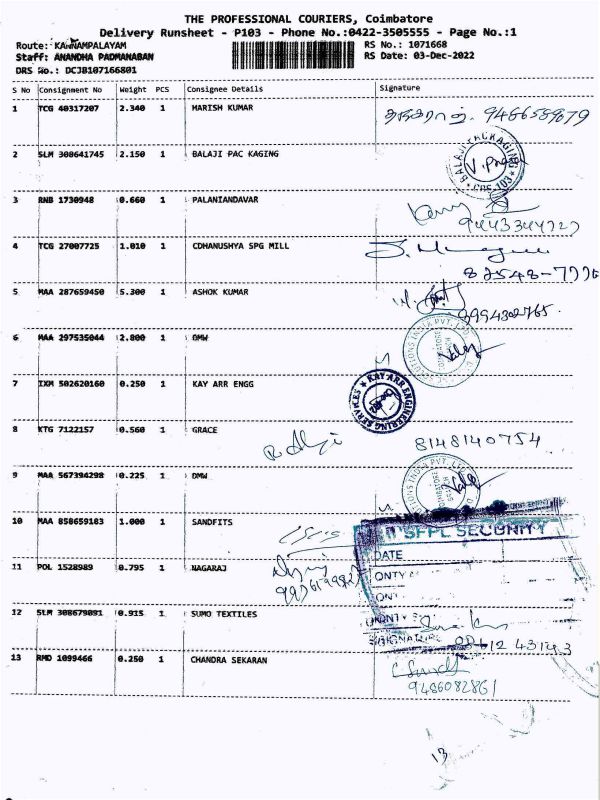 THE PROFESSIONAL COURIERS, Coimbatore
Delivery Runsheet - P103 - Phone No.:0422-3505555 - Page No.:1
Route: KANNAMPALAYAM
RS No.: 1071668
Staff: ANANDHA PADMANABAN
RS Date: 03-Dec-2022
DRS No.: DCJB107166801
S No Consignment No Weight PCS Consignee Details Signature
1 TCG 40317207 2.340 1 HARISH KUMAR
2 SLM 308641745 2.150 1 BALAJI PAC KAGING
BALAJI PACKAGING
3 RNB 1730948 0.660 1 PALANIANDAVAR
4 TCG 27007725 1.010 1 CDHANUSHYA SPG MILL
5 MAA 287659450 5.300 1 ASHOK KUMAR
6 MAA 297535044 2.800 1 DMW
7 IXM 502620160 0.250 1 KAY ARR ENGG
KAY ARR ENGINEERING SERVICES
8 KTG 7122157 0.560 1 GRACE 8148140754
9 MAA 567394298 0.225 1 DMW
10 MAA 858659183 1.000 1 SANDFITS
SFPL SECURITY
DATE
11 POL 1528989 0.795 1 NAGARAJ
12 SLM 308679891 0.915 1 SUMO TEXTILES
SIGNATURE
13 RMD 1099466 0.250 1 CHANDRA SEKARAN
9486082861
13